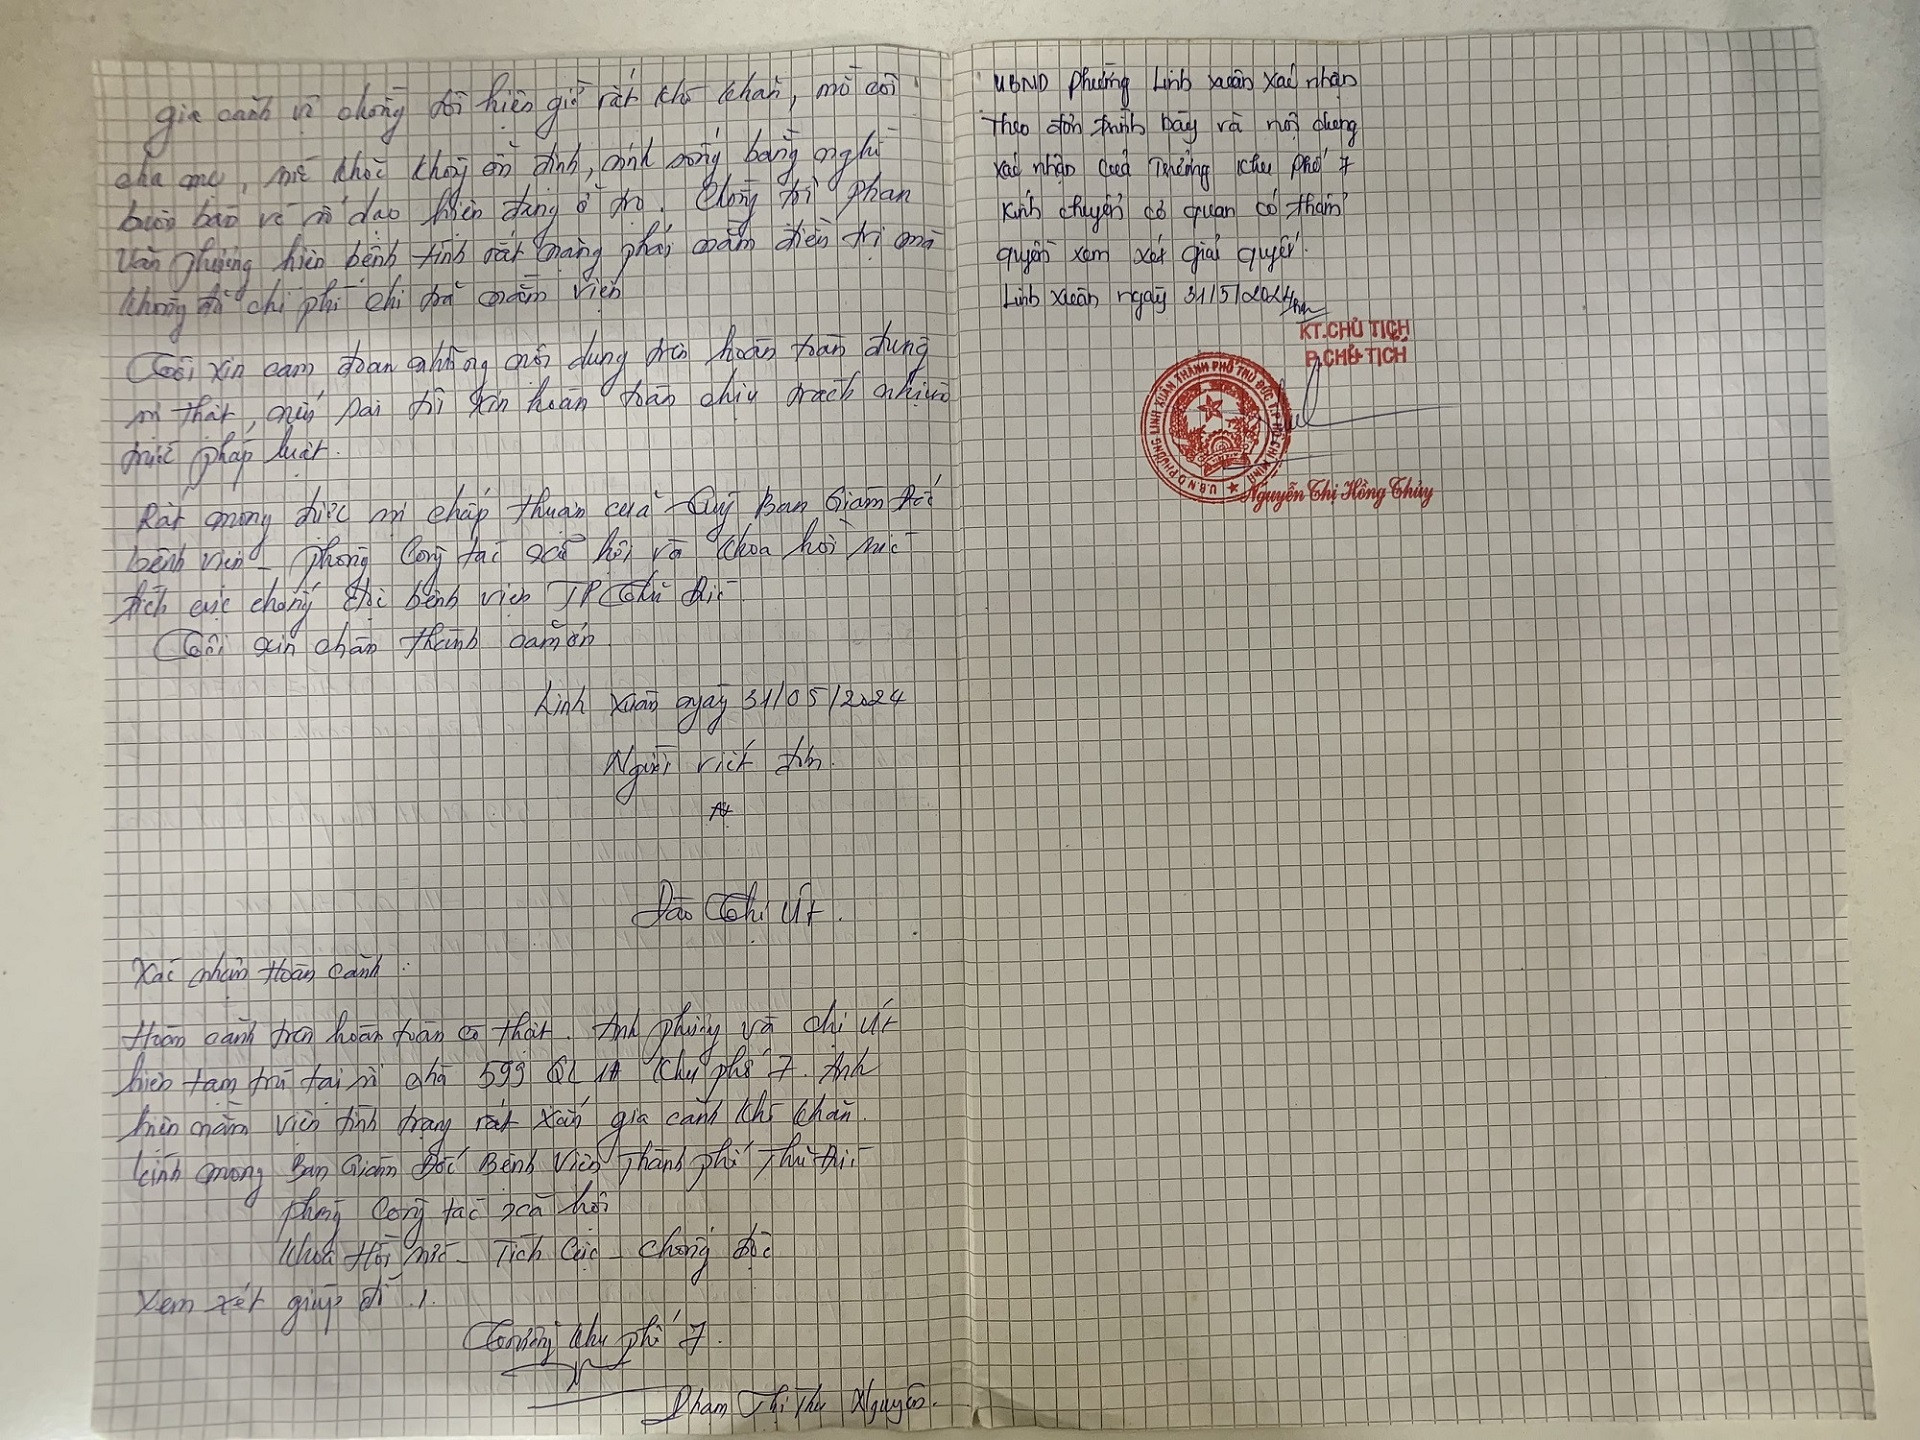 gia cảnh vợ chồng tôi hiện giờ rất khó khăn, mồ côi
cha mẹ, sức khỏe không ổn định, sinh sống bằng nghề
buôn bán vé số dạo hiện đang ở trọ. Chồng tôi Phan
Văn Phường hiện bệnh tình rất nặng phải nằm điều trị mà
không đủ chi phí chi trả nằm viện
Tôi xin cam đoan những nội dung trên hoàn toàn đúng
sự thật, nếu sai tôi xin hoàn toàn chịu trách nhiệm
trước pháp luật.
Rất mong được sự chấp thuận của Quý Ban Giám Đốc
bệnh viện - Phòng Công tác xã hội và khoa hồi sức
tích cực chống độc bệnh viện TP Thủ Đức.
Tôi xin chân thành cảm ơn.
Linh Xuân ngày 31/05/2024
Người viết đơn.
Út
Đào Thị Út.
Xác nhận Hoàn Cảnh:
Hoàn cảnh trên hoàn toàn có thật. Anh Phường và chị Út
hiện tạm trú tại số nhà 599 QL 1A Khu phố 7. Anh
hiện nằm viện tình trạng rất xấu gia cảnh khó khăn.
Kính mong Ban Giám Đốc Bệnh Viện Thành phố Thủ Đức
Phòng Công tác xã hội
Khoa Hồi sức - Tích Cực - Chống độc
Xem xét giúp đỡ ./.
Trưởng khu phố 7.
Phạm Thị Thu Nguyên.
UBND phường Linh Xuân xác nhận
Theo đơn trình bày và nội dung
xác nhận của Trưởng Khu Phố 7
Kính chuyển cơ quan có thẩm
quyền xem xét giải quyết.
Linh Xuân ngày 31/5/2024
KT.CHỦ TỊCH
P.CHỦ TỊCH
U.B.N.D PHƯỜNG LINH XUÂN THÀNH PHỐ THỦ ĐỨC T.P HỒ CHÍ MINH
Nguyễn Thị Hồng Thủy